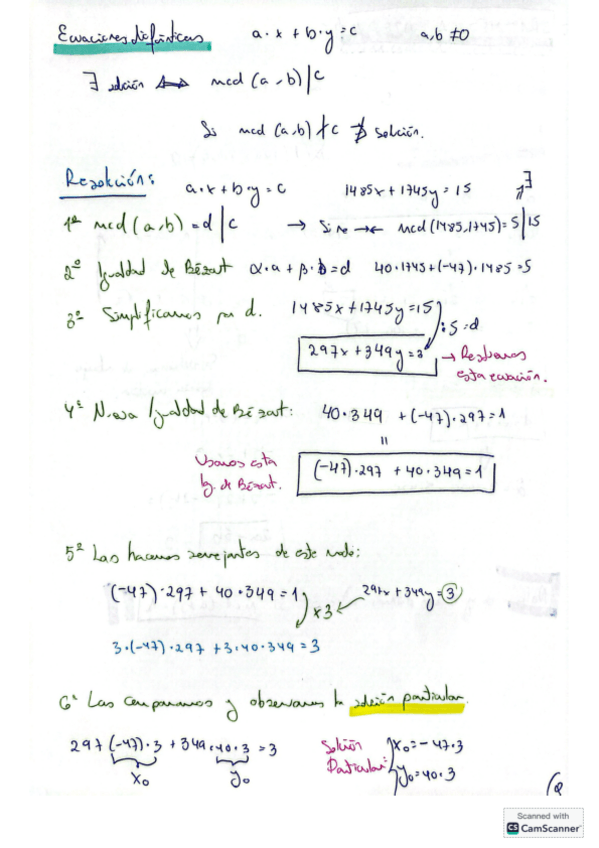 Ecuaciones diofánticas a·x + b·y = c a,b ≠0
∃ solución ⟺ mcd (a,b) | c
Si mcd (a,b) ∤ c ∄ solución.
Resolución: a·x + b·y = c 1485x + 1745y = 15
1º mcd (a,b) = d | c → mcd (1485,1745) = 5 | 15 ∃
2º Igualdad de Bézout α·a + β·b = d 40·1745 + (-47)·1485 = 5
3º Simplificamos por d. 1485x + 1745y = 15
:5 = d
297x + 349y = 3 → Resolvemos
esta ecuación.
4º Nueva Igualdad de Bézout: 40·349 + (-47)·297 = 1
=
Usamos esta (-47)·297 + 40·349 = 1
Ig. de Bézout.
5º Las hacemos semejantes de este modo:
(-47)·297 + 40·349 = 1 x3 ← 297x + 349y = 3
3·(-47)·297 + 3·40·349 = 3
6º Las comparamos y observamos la solución particular.
297(-47)·3 + 349·40·3 = 3 Solución x0 = -47·3
x0 y0 Particular: y0 = 40·3
Scanned with
CS CamScanner